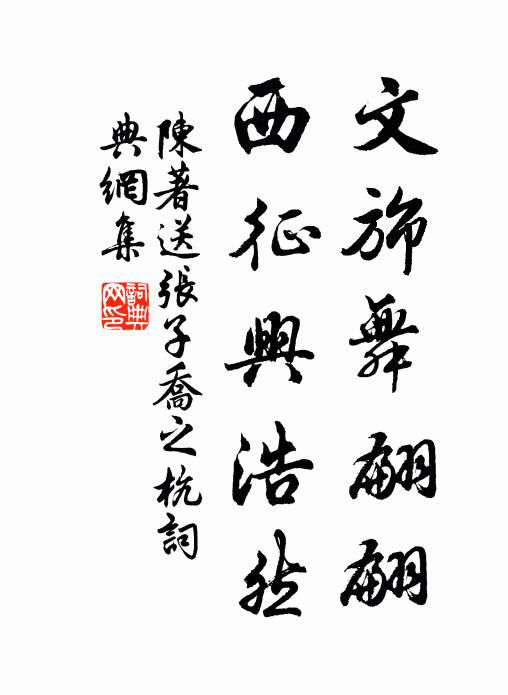 文旆舞翩翩
西征興浩然
陳著送張子喬之杭詞
典網集
詞典網印